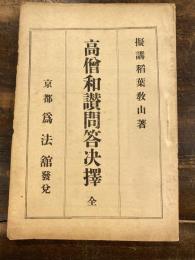 擬講稲葉敎山著
高僧和讃問答決擇 全
京都 爲法舘發兌